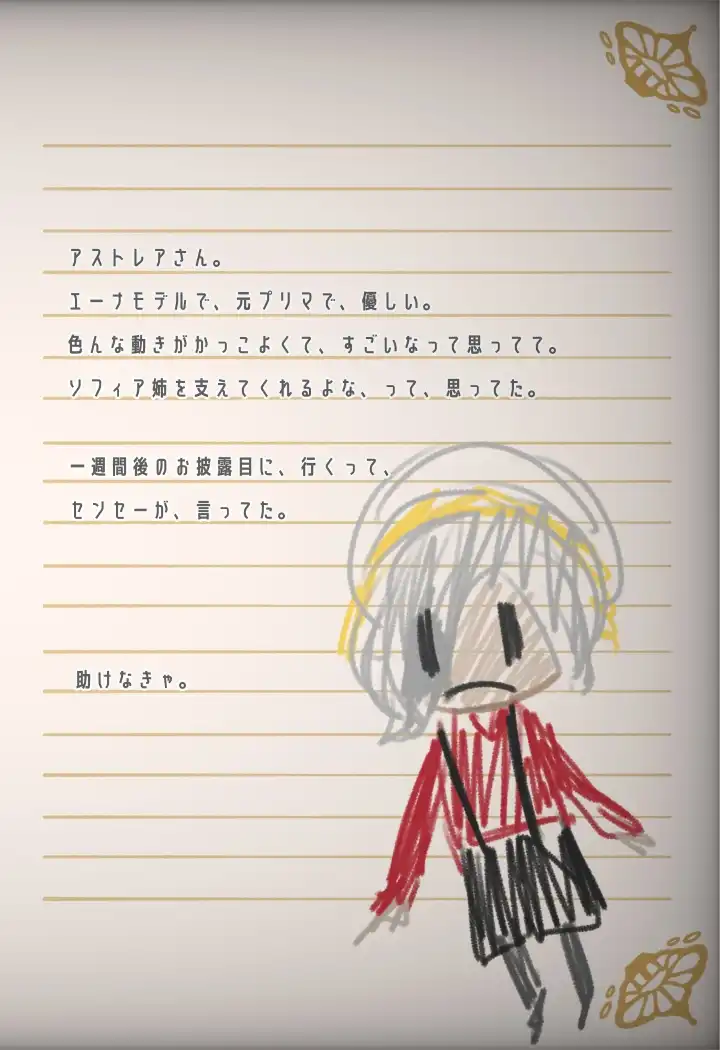 アストレアさん。
エーナモデルで、元プリマで、優しい。
色んな動きがかっこよくて、すごいなって思ってて。
ソフィア姉を支えてくれるよな、って、思ってた。
一週間後のお披露目に、行くって、
センセーが、言ってた。
助けなきゃ。